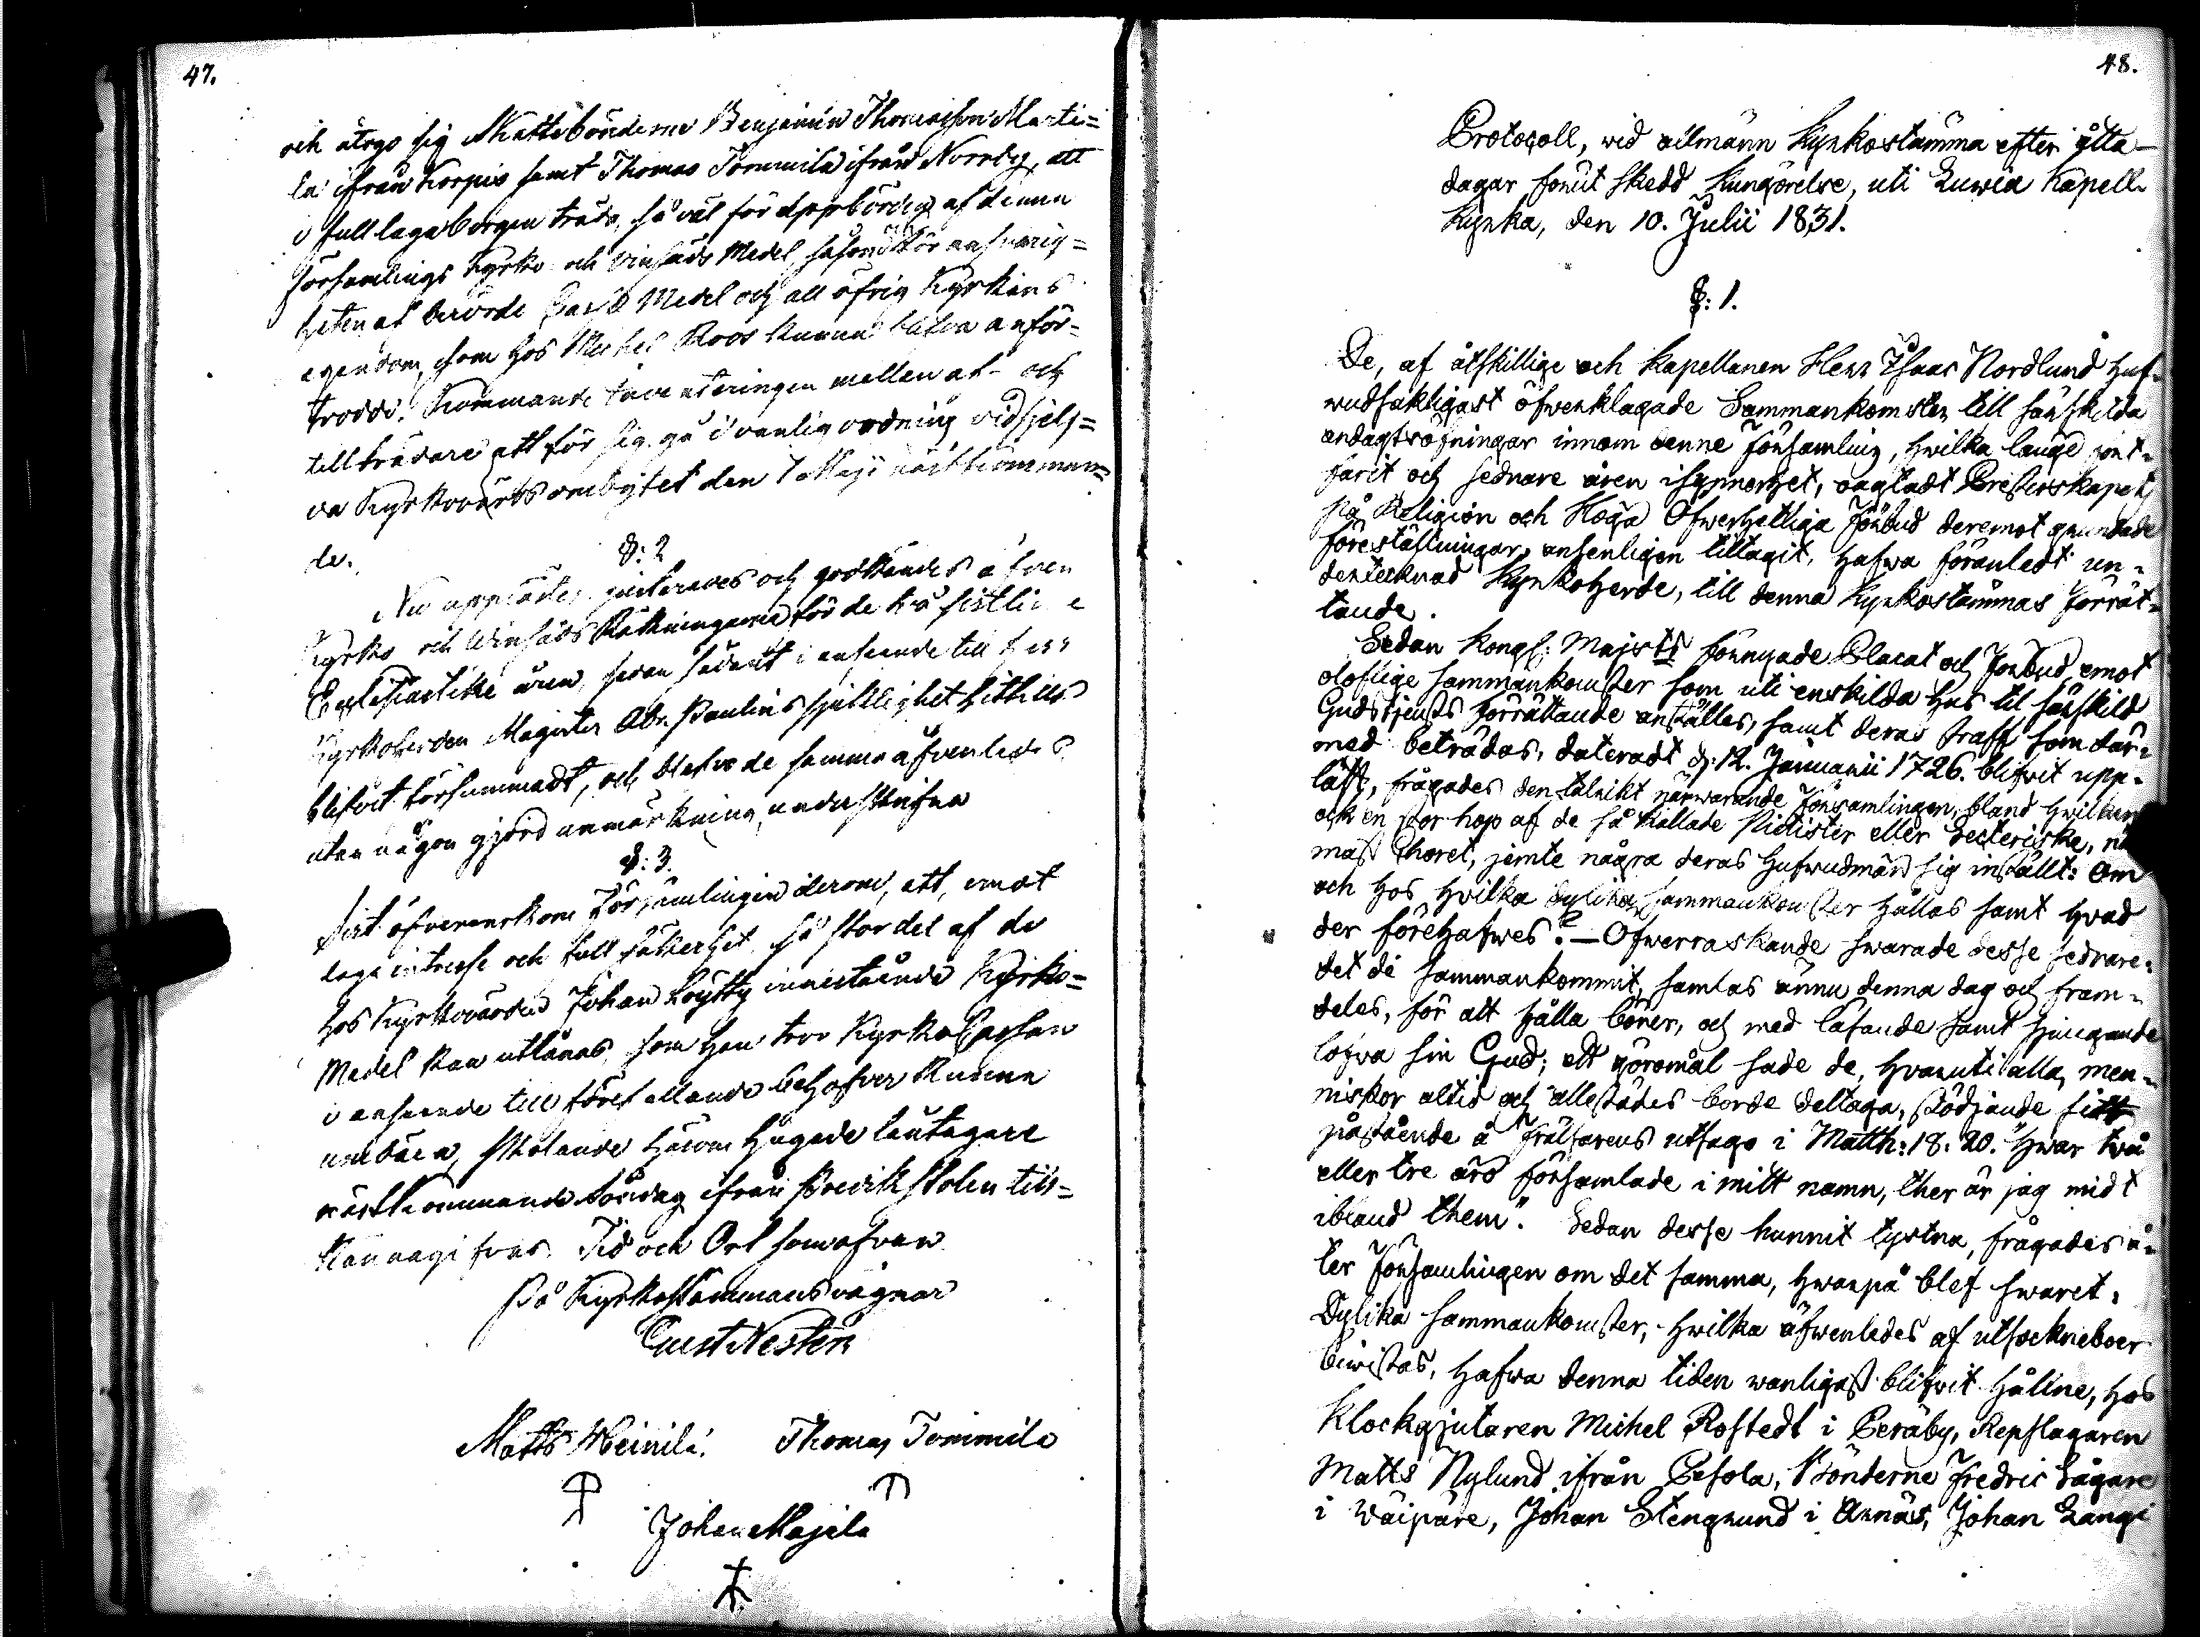 47.
och åtogo sig Skattebönderne Benjamin Thomasson Marti=
la ifrån Korpis samt Thomas Tommila ifrån Norrby, att
i full laga borgen träda, så väl för uppbörden af denna
Församlings Kyrko och Vinsäds Medel, såsom för ansvarig=
heten af berörde Medel och all öfrig Kyrkans
egendom, som hos Michel Roos kunna blifva anför=
trodde. Kommande inventeringen mellan af- och
tillträdare att för sig gå i vanlig ordning vid sjelf=
va Kyrkovärds ombytet den 1 Maji nästkomman=
de.
§: 2
Nu upplästes, justerades och godkändes äfven
Kyrko och Winsäds Räkningarne för de två sistlidne
Ecclesiastike åren, sedan sådant i anseende till
Kyrkoherden Magister Abr. Paulins sjuklighet hittills
blifvit försummadt, och blefvo de samma äfvenledes
utan någon gjord anmärkning underskrifne
§: 3.
Sist öfverenskom Församlingen derom, att, emot
laga intresse och full säkerhet, så stor del af de
hos Kyrkovärden Johan Löytty innestående Kyrko=
Medel kan utlånas, som han tror Kyrko Cassan
i anseende till förefallande behofver kunna
umbära, skolande härom hugade låntagare
nästkommande Söndag ifrån Predikstolen till=
kännagifvas. Tid och Ort som ofvan
På Kyrkostämmans vägnar
Gust Nestér
Matts Heinilä. Thomas Tommila
Johan Majela
48.
Protocoll, wid allmänn Kyrkostämma efter åtta
dagar förut skedd kungörelse, uti Luwia Kapell-
Kyrka, den 10. Julii 1831.
§: 1.
De, af åtskillige och Kapellanen Herr Isaac Nordlund huf-
wudsakligast öfwerklagade Sammankomster till särskilda
andagtsöfningar innom denne Församling, hwilka länge fort-
farit och sednare åren isynnerhet, oagtadt Presterskapets
på Religion och Höga Öfwerhetliga Förbud deremot grundade
föreställningar, ansenligen tilltagit, hafwa föranledt un-
dertecknad Kyrkoherde, till denna Kyrkostämmas förrät-
tande.
Sedan Kongl: Majsts förnyade Placat och Förbud, emot
oloflige sammankomster som uti enskilda hus til särskild
Gudstjensts förrättande anställes, samt deras straff som där-
med beträdas, dateradt d: 12. Januarii 1726. blifwit upp-
läst, frågades den talrikt närwarande Församlingen, bland hwilken
ock en stor hop af de så kallade Pietister eller Secteriske,
mast Choret, jemte några deras hufwudmän sig inställt: Om
och hos hvilka dylika sammankomster hållas samt hvad
der förehafwes? — Öfwerraskande swarade desse sednare:
det de sammankommit, samlas ännu denna dag och fram-
deles, för att hålla böner, och med läsande samt sjungande
lofva sin Gud; ett göromål sade de, hvaruti alla, men-
niskor altid och allestädes borde deltaga, stödjande sitt
påstående å Frälsarens utsago i Matth: 18: 20. "Hwar två
eller tre äro församlade i mitt namn, ther är jag midt
ibland them". Sedan desse hunnit tystna, frågades å-
ter Församlingen om det samma, hwarpå blef swaret:
Dylika sammankomster, hwilka äfwenledes af utsockneboer
biwistas, hafwa denna tiden wanligast blifwit hållne, hos
Klockgjutaren Michel Rostedt i Peräby, Repslagaren
Matts Nylund ifrån Pesola, Bönderne Fredric Sågare
i Väipäre, Johan Stengrund i Arnäs, Johan Langi